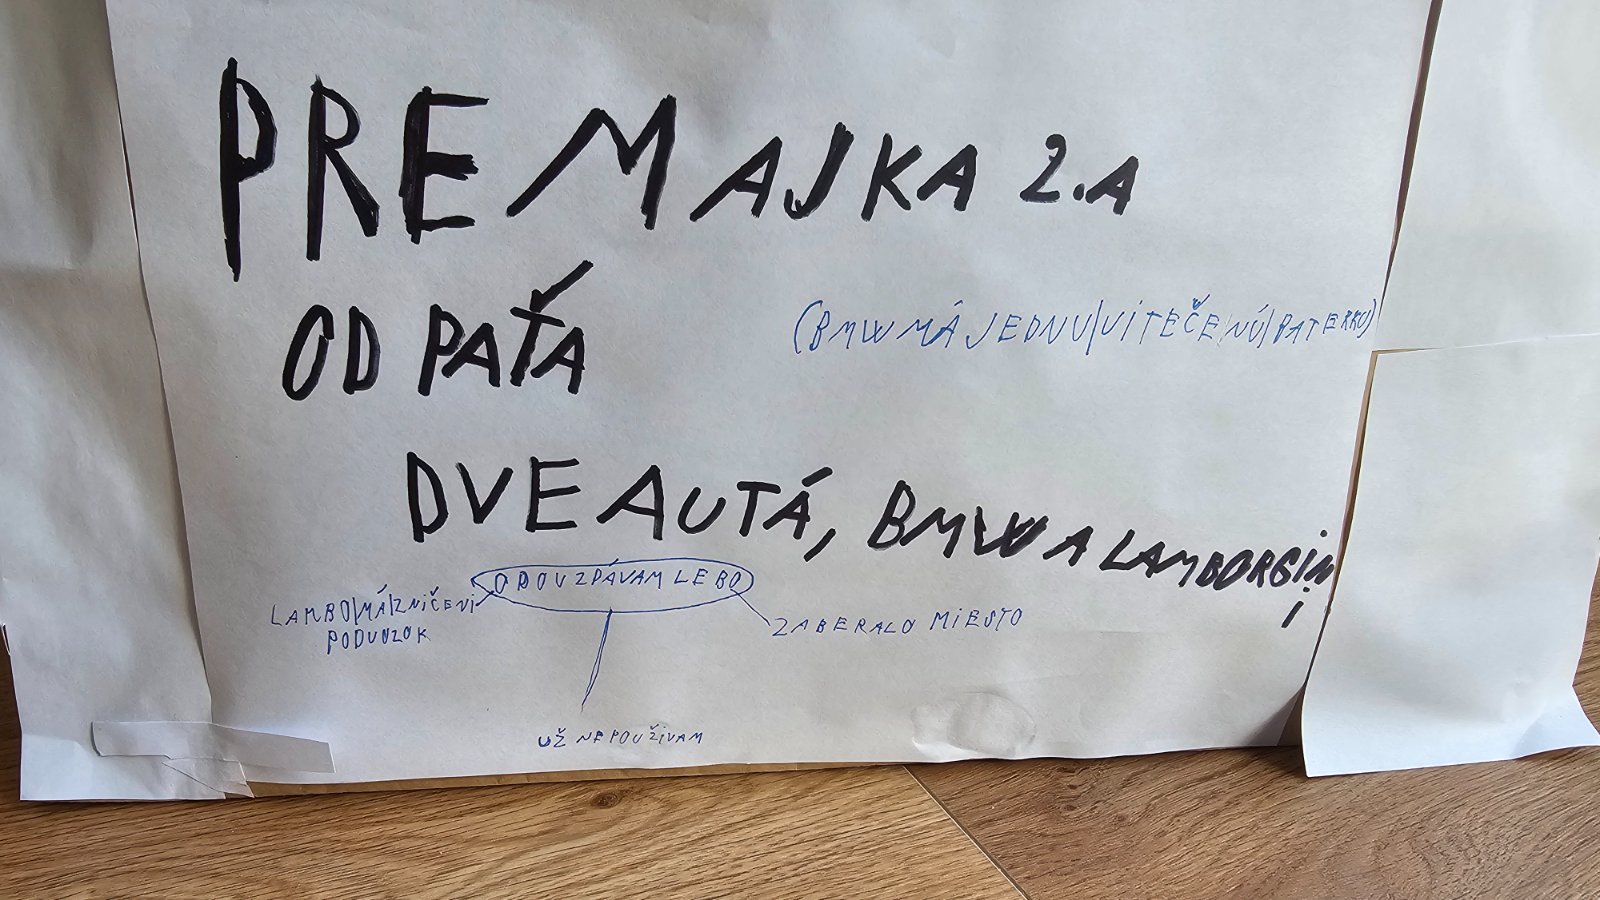 PRE MAJKA 2.A
OD PAŤA
(BMW MÁ JEDNU VITEČENÚ BATERKU)
DVE AUTÁ, BMW A LAMBORGINI
ODOVZDÁVAM LEBO
LAMBO MÁ ZNIČENI
PODVOZOK
ZABERALO MIESTO
UŽ NEPOUŽIVAM